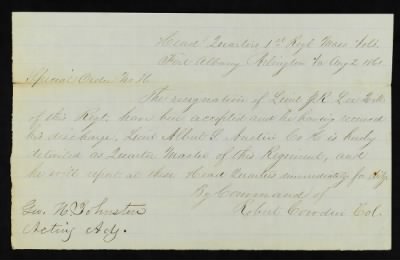 Head Quarters 1st Regt Mass Vols.
Fort Albany Arlington Va Aug 2 186
Special Order No
The resignation of Lieut
of this Regt. have been accepted and he having received
his discharge, Lieut Albert S Austin Co is hereby
detailed as Quarter Master of this Regiment, and
he will report at these Head Quarters immediately for duty
By Command of
Robert Cowdin Col.
Geo. H. Johnston
Acting Adj.